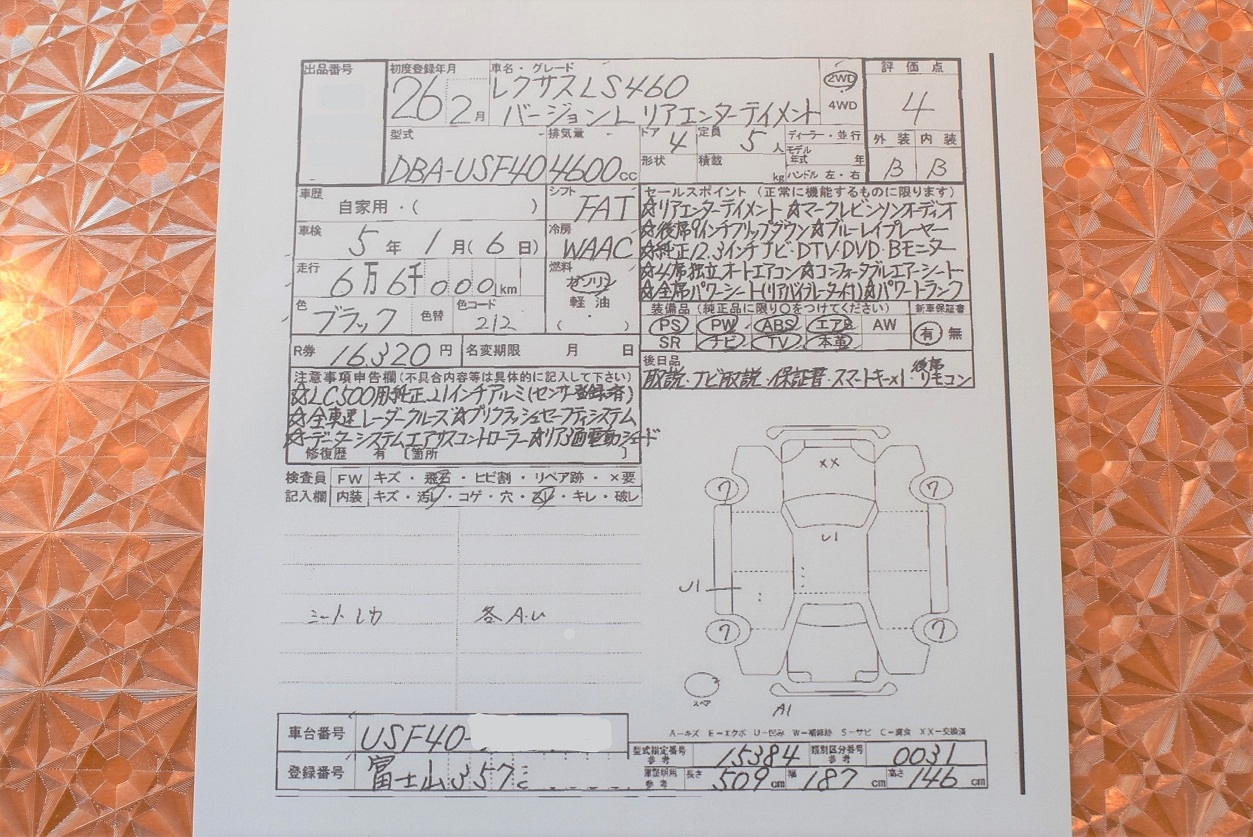 出品番号
初度登録年月 車名・グレード
26 2月 レクサスLS460 2WD
バージョンL リアエンターテイメント 4WD
評価点
4
外装 内装
B B
型式 排気量 ドア 定員 ディーラー・並行
DBA-USF40 4600cc 4 5人
形状 積載 kg モデル年式 年
ハンドル 左・右
車歴 自家用・( )
シフト FAT
車検 5年 1月(6日)
冷房 WAAC
走行 6万6千000km
燃料 ガソリン
軽油
( )
色 ブラック 色替 色コード 212
R券 16,320円 名変期限 月 日
セールスポイント(正常に機能するものに限ります)
☆リアエンターテイメント ☆マークレビンソンオーディオ
☆後席9インチフリップダウン ☆ブルーレイプレーヤー
☆純正12.3インチナビ・DTV・DVD・Bモニター
☆4席独立オートエアコン ☆コンフォータブルエアーシート
☆全席パワーシート(リアバイブレーター付) ☆パワートランク
装備品(純正品に限り○をつけてください) 新車保証書
PS PW ABS エアB AW 有 無
SR ナビ TV 本革
後日品
取説・ナビ取説・保証書・スマートキーx1 後席リモコン
注意事項申告欄(不具合内容等は具体的に記入して下さい)
☆LC500用純正21インチアルミ(センサー登録済)
☆全車速レーダークルーズ ☆プリクラッシュセーフティシステム
☆データーシステムエアサスコントローラー ☆リア3面電動シェード
修復歴 有 [箇所 ]
検査員 FW キズ・飛石・ヒビ割・リペア跡・×要
記入欄 内装 キズ・汚レ・コゲ・穴・スレ・キレ・破レ
各A.U
XX
7 7
U1
U1
7 7
スペア
A1
A-キズ E-エクボ U-凹み W-補修跡 S-サビ C-腐食 XX-交換済
車台番号 USF40-
登録番号 富士山 357
型式指定番号 参考 15384 類別区分番号 参考 0031
車証明用 参考 長さ 509cm 幅 187cm 高さ 146cm